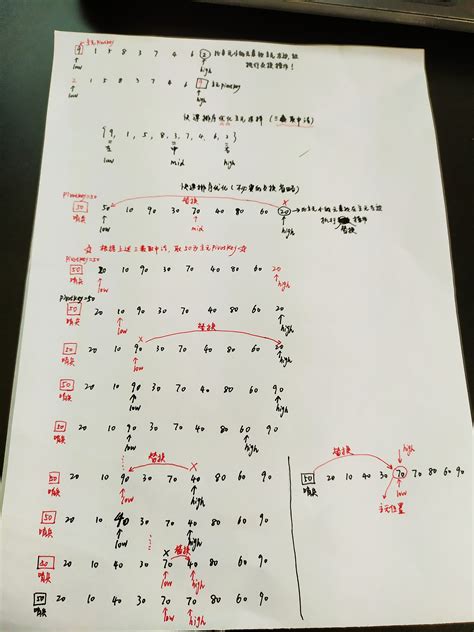 主元pivotkey
9 1 5 8 3 7 4 6 2 比主元小的元素和主元交换,故
low high 执行交换操作!
2 1 5 8 3 7 4 6 9 主元pivotkey
low high
快速排序优化主元选择(三数取中法)
{9, 1, 5, 8, 3, 7, 4, 6, 2}
左 中 右
low mid high
快速排序优化(不必要的交换省略)
pivotkey=50 替换
50 50 10 90 30 70 40 80 60 20
哨兵 low mid high 执行 操作
替换
☆ 根据上述三数取中法,取50为主元pivotkey ☆
pivotkey=50
50 20 10 90 30 70 40 80 60 20
哨兵 low high
pivotkey=50
50 20 10 90 30 70 40 80 60 20
哨兵 low high
替换
50 20 10 90 30 70 40 80 60 20
哨兵 low high
50 20 10 90 30 70 40 80 60 90
哨兵 low high
50 20 10 90 30 70 40 80 60 90
哨兵 low high
替换
50 20 10 90 30 70 40 80 60 90
哨兵 low high
50 20 10 40 30 70 40 80 60 90
哨兵 low high
替换
50 20 10 40 30 70 40 80 60 90
哨兵 low high
50 20 10 40 30 70 70 80 60 90
哨兵 low high
high
替换
50 20 10 40 30 70 70 80 60 90
哨兵 low
主元位置